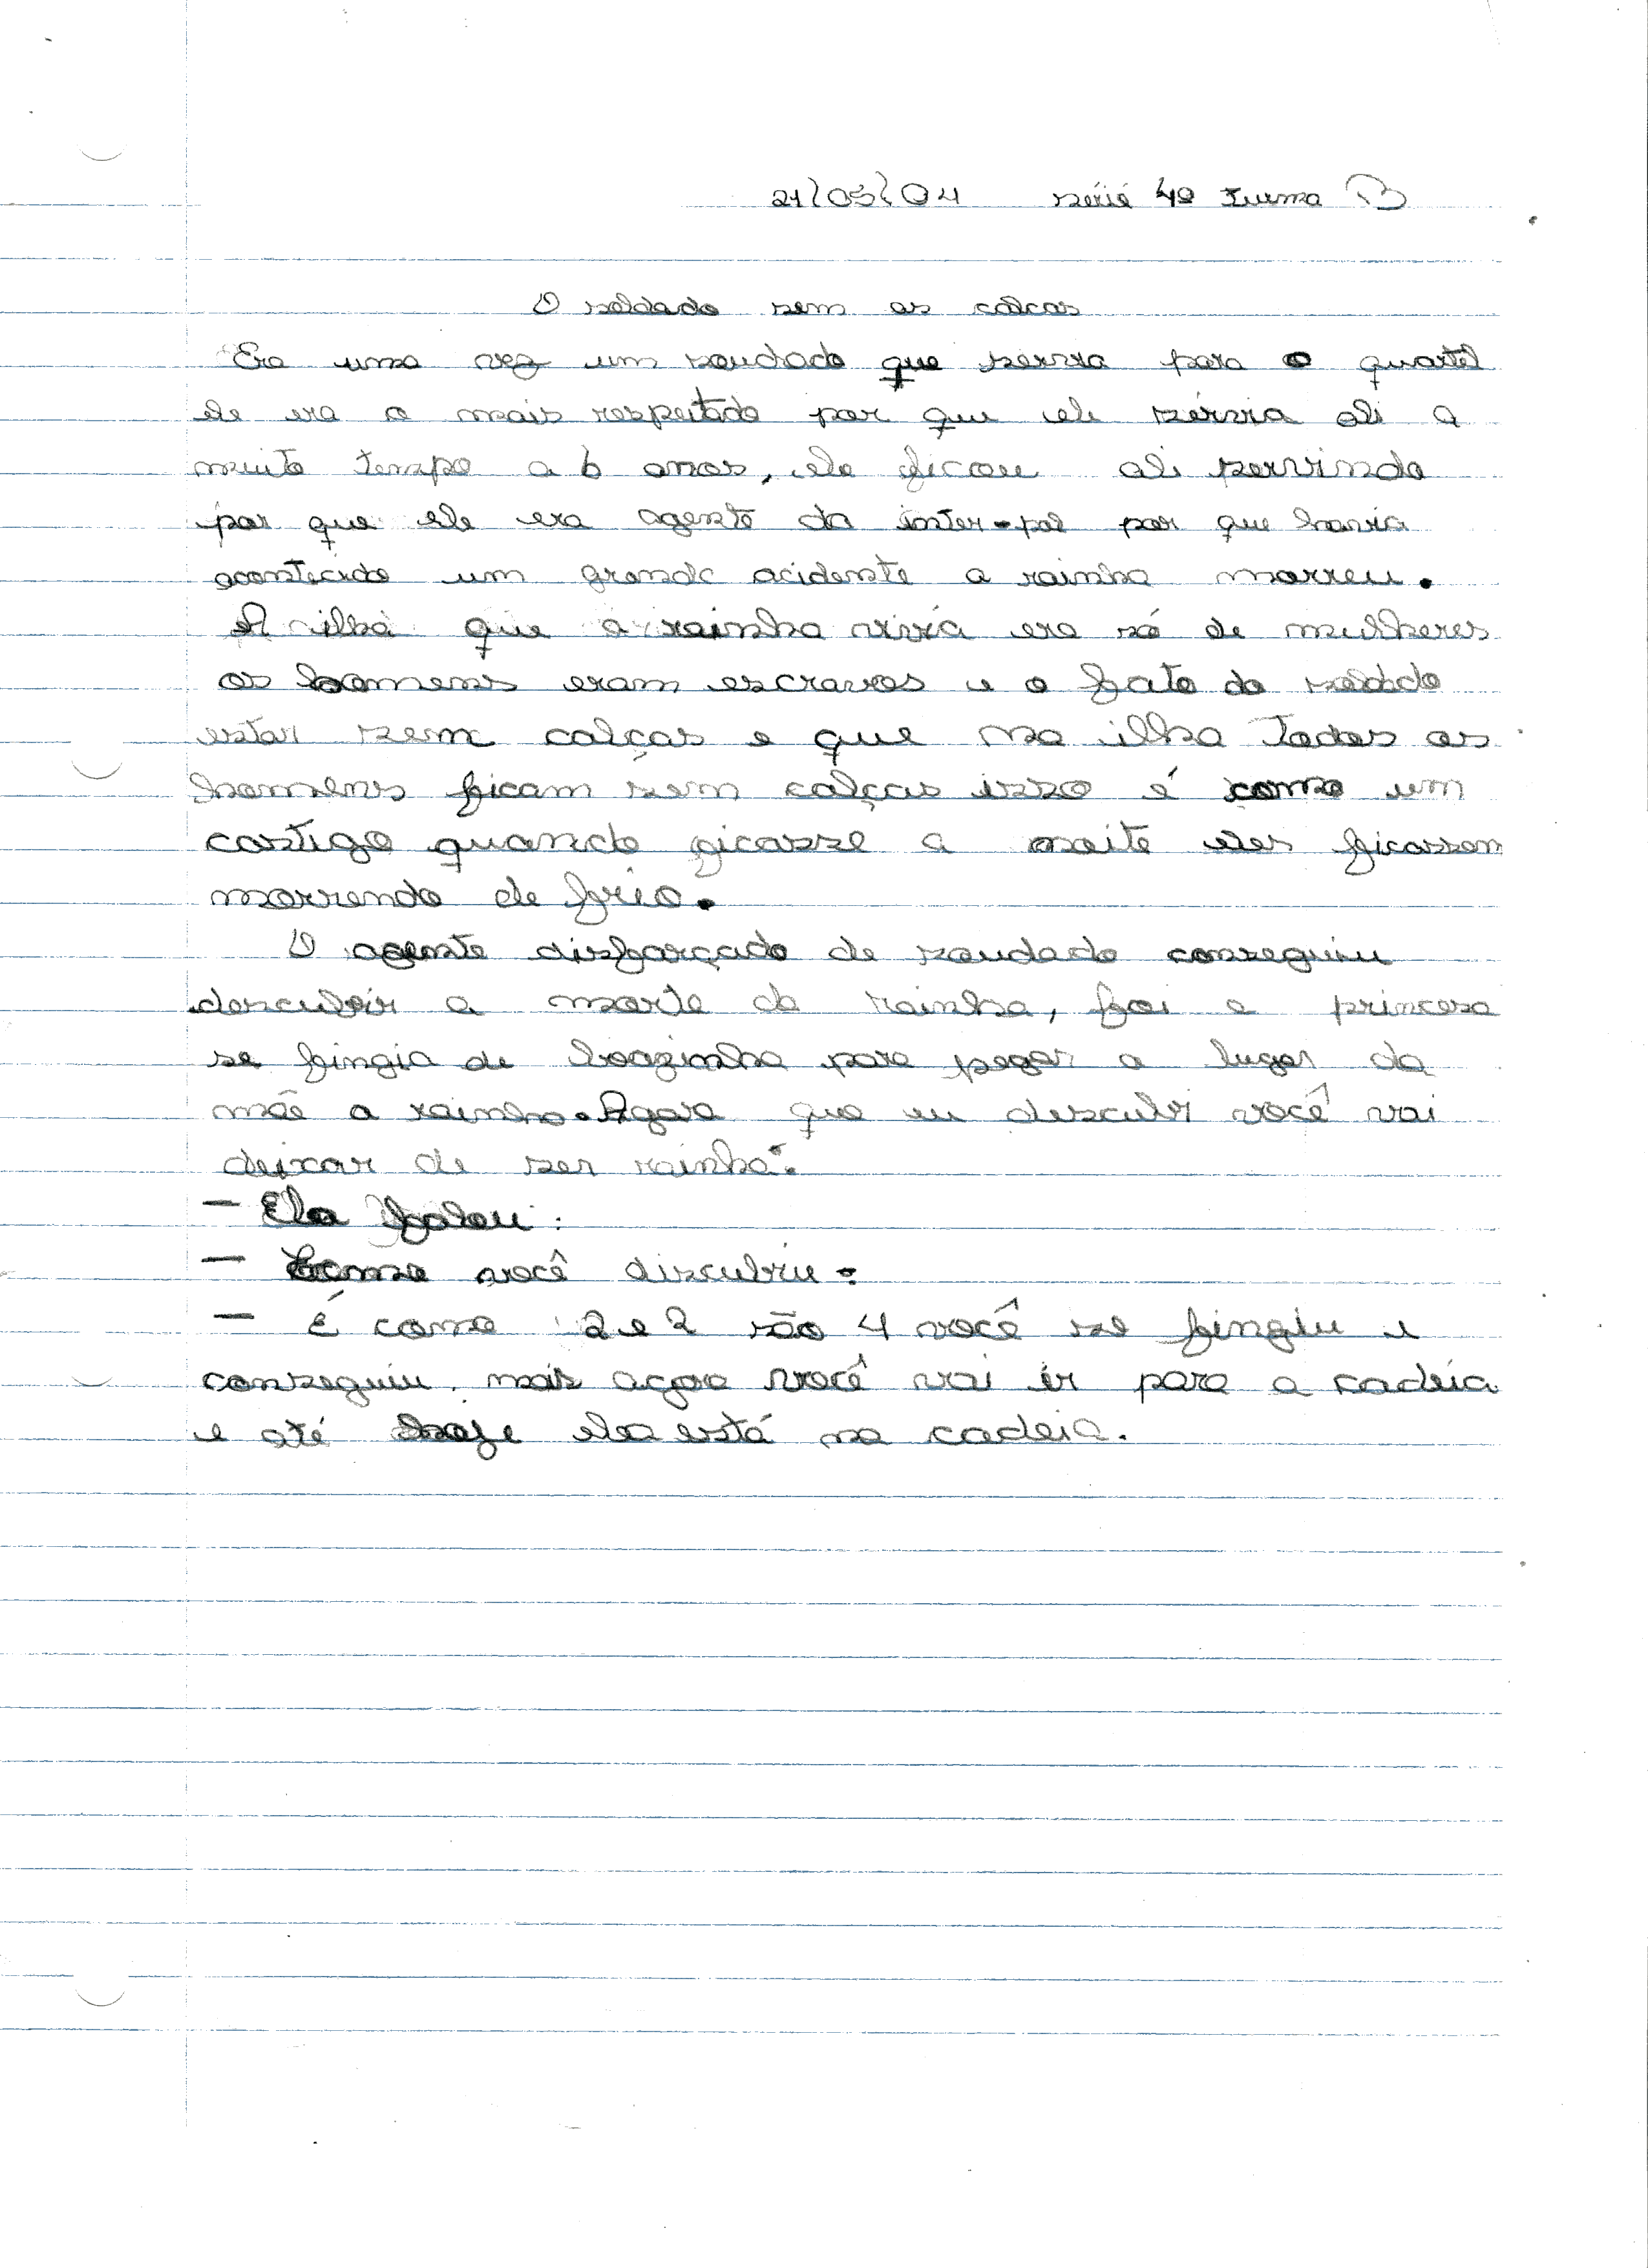 21/05/04 série 4ª Turma B
O soldado sem as calcas
Era uma vez um soudado que servia para o quartel
ele era o mais respeitado por que ele servia ali a
muito tempo a 6 anos, ele ficou ali servindo
por que ele era agente da inter-pol por que havia
acontecido um grande acidente a rainha morreu.
A ilha que a rainha vivia era só de mulheres
os homens eram escravos e o fato do soldado
estar sem calças e que na ilha Todos os
homens ficam sem calças isso é como um
castigo quando ficasse a noite eles ficassem
morrendo de frio.
O agente disfarçado de soudado conseguiu
descubrir a morte da rainha, foi a princesa
se fingia de boazinha para pegar o lugar da
mãe a rainha. Agora que eu descubri você vai
deixar de ser rainha.
— Ela falou:
— Como você discubriu.
— É como 2 e 2 são 4 você se fingiu e
conseguiu. mais agora você vai ir para a cadeia
e até hoje ela está na cadeia.